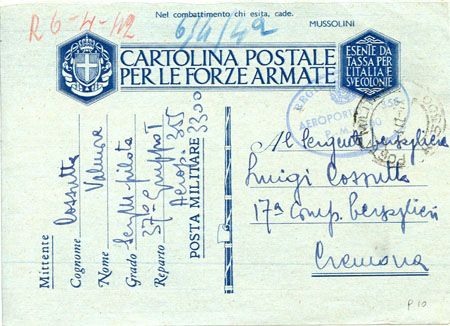 Nel combattimento chi esita, cade.
MUSSOLINI
R 6-4-42
6/4/42
CARTOLINA POSTALE
PER LE FORZE ARMATE
ESENTE DA
TASSA PER
L'ITALIA E
SUE COLONIE
AEROPORTO
P. M.
Al Sergente bersagliere
Luigi Cossutta
17ª Comp. Bersaglieri
Cremona
Mittente
Cognome Cossutta
Grado Serg. pilota
Reparto
Aerop. 355
POSTA MILITARE 3300
P 10